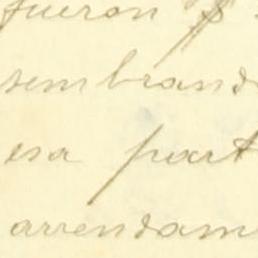 fueron
sembrand
esa part
arrendam